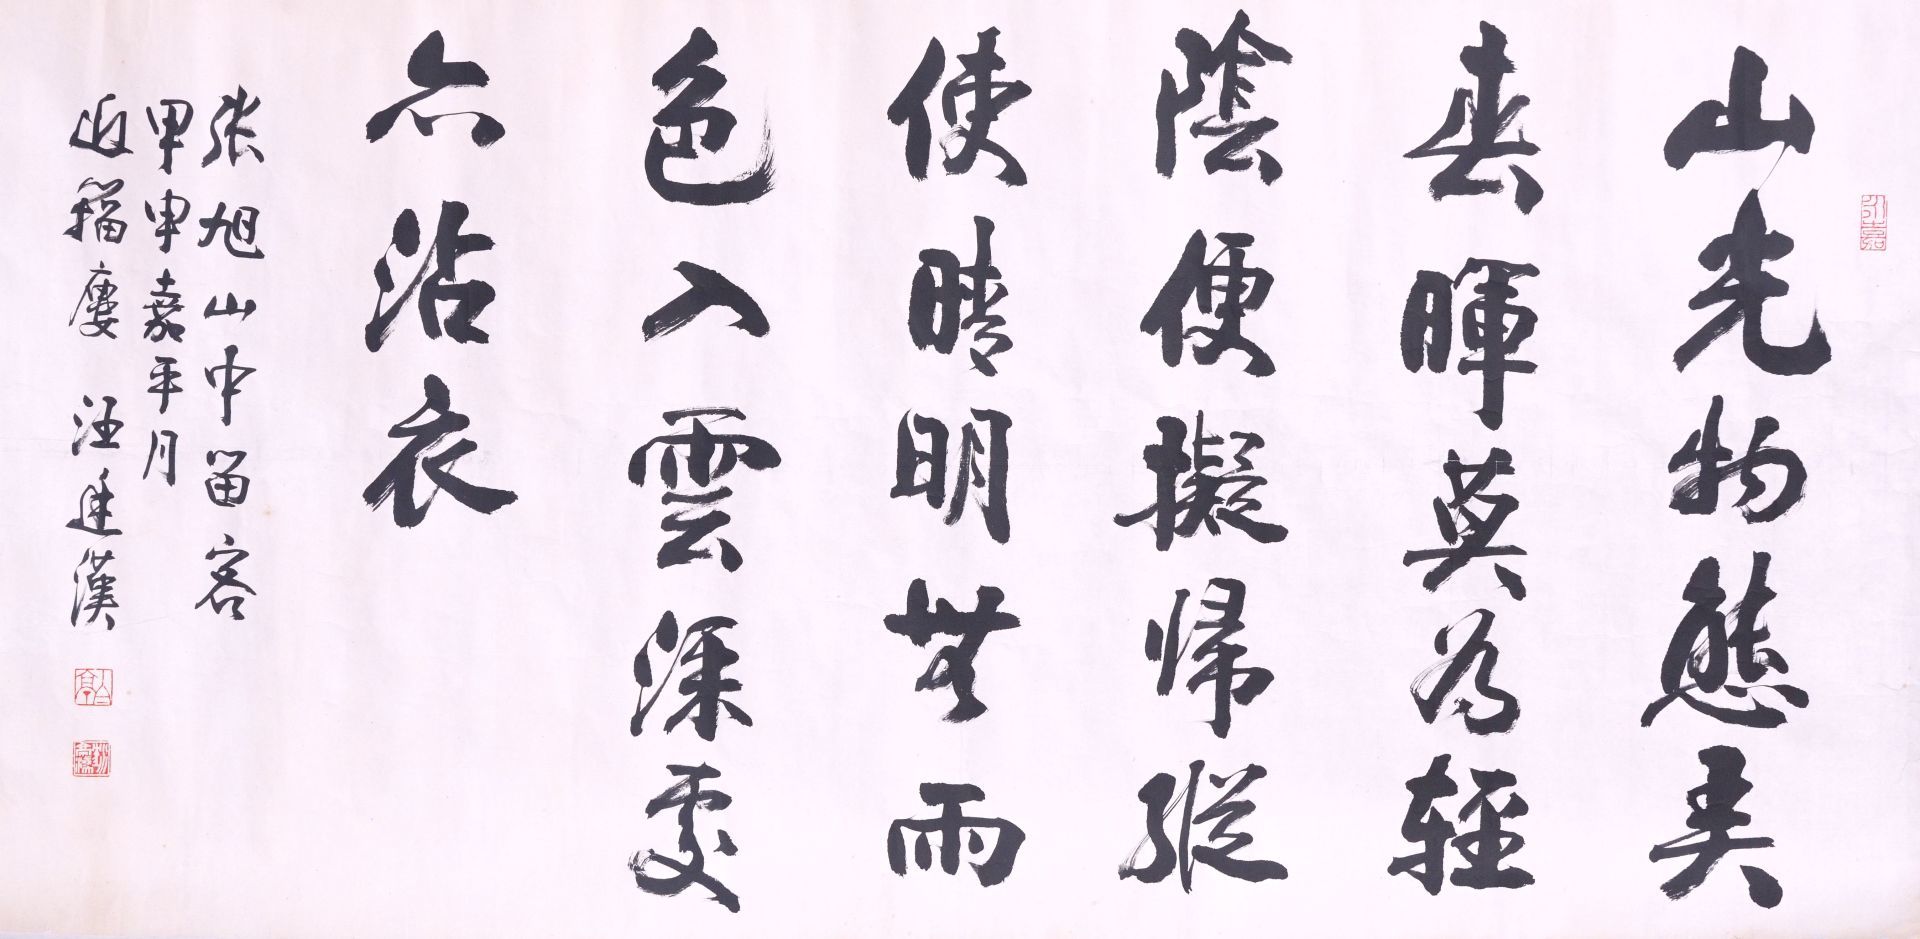 永嘉
山光物態弄
春暉莫為輕
陰便擬帰縱
使晴明無雨
色入雲深處
亦沾衣
張旭山中留客
甲申嘉平月
近籀廔 汪廷漢